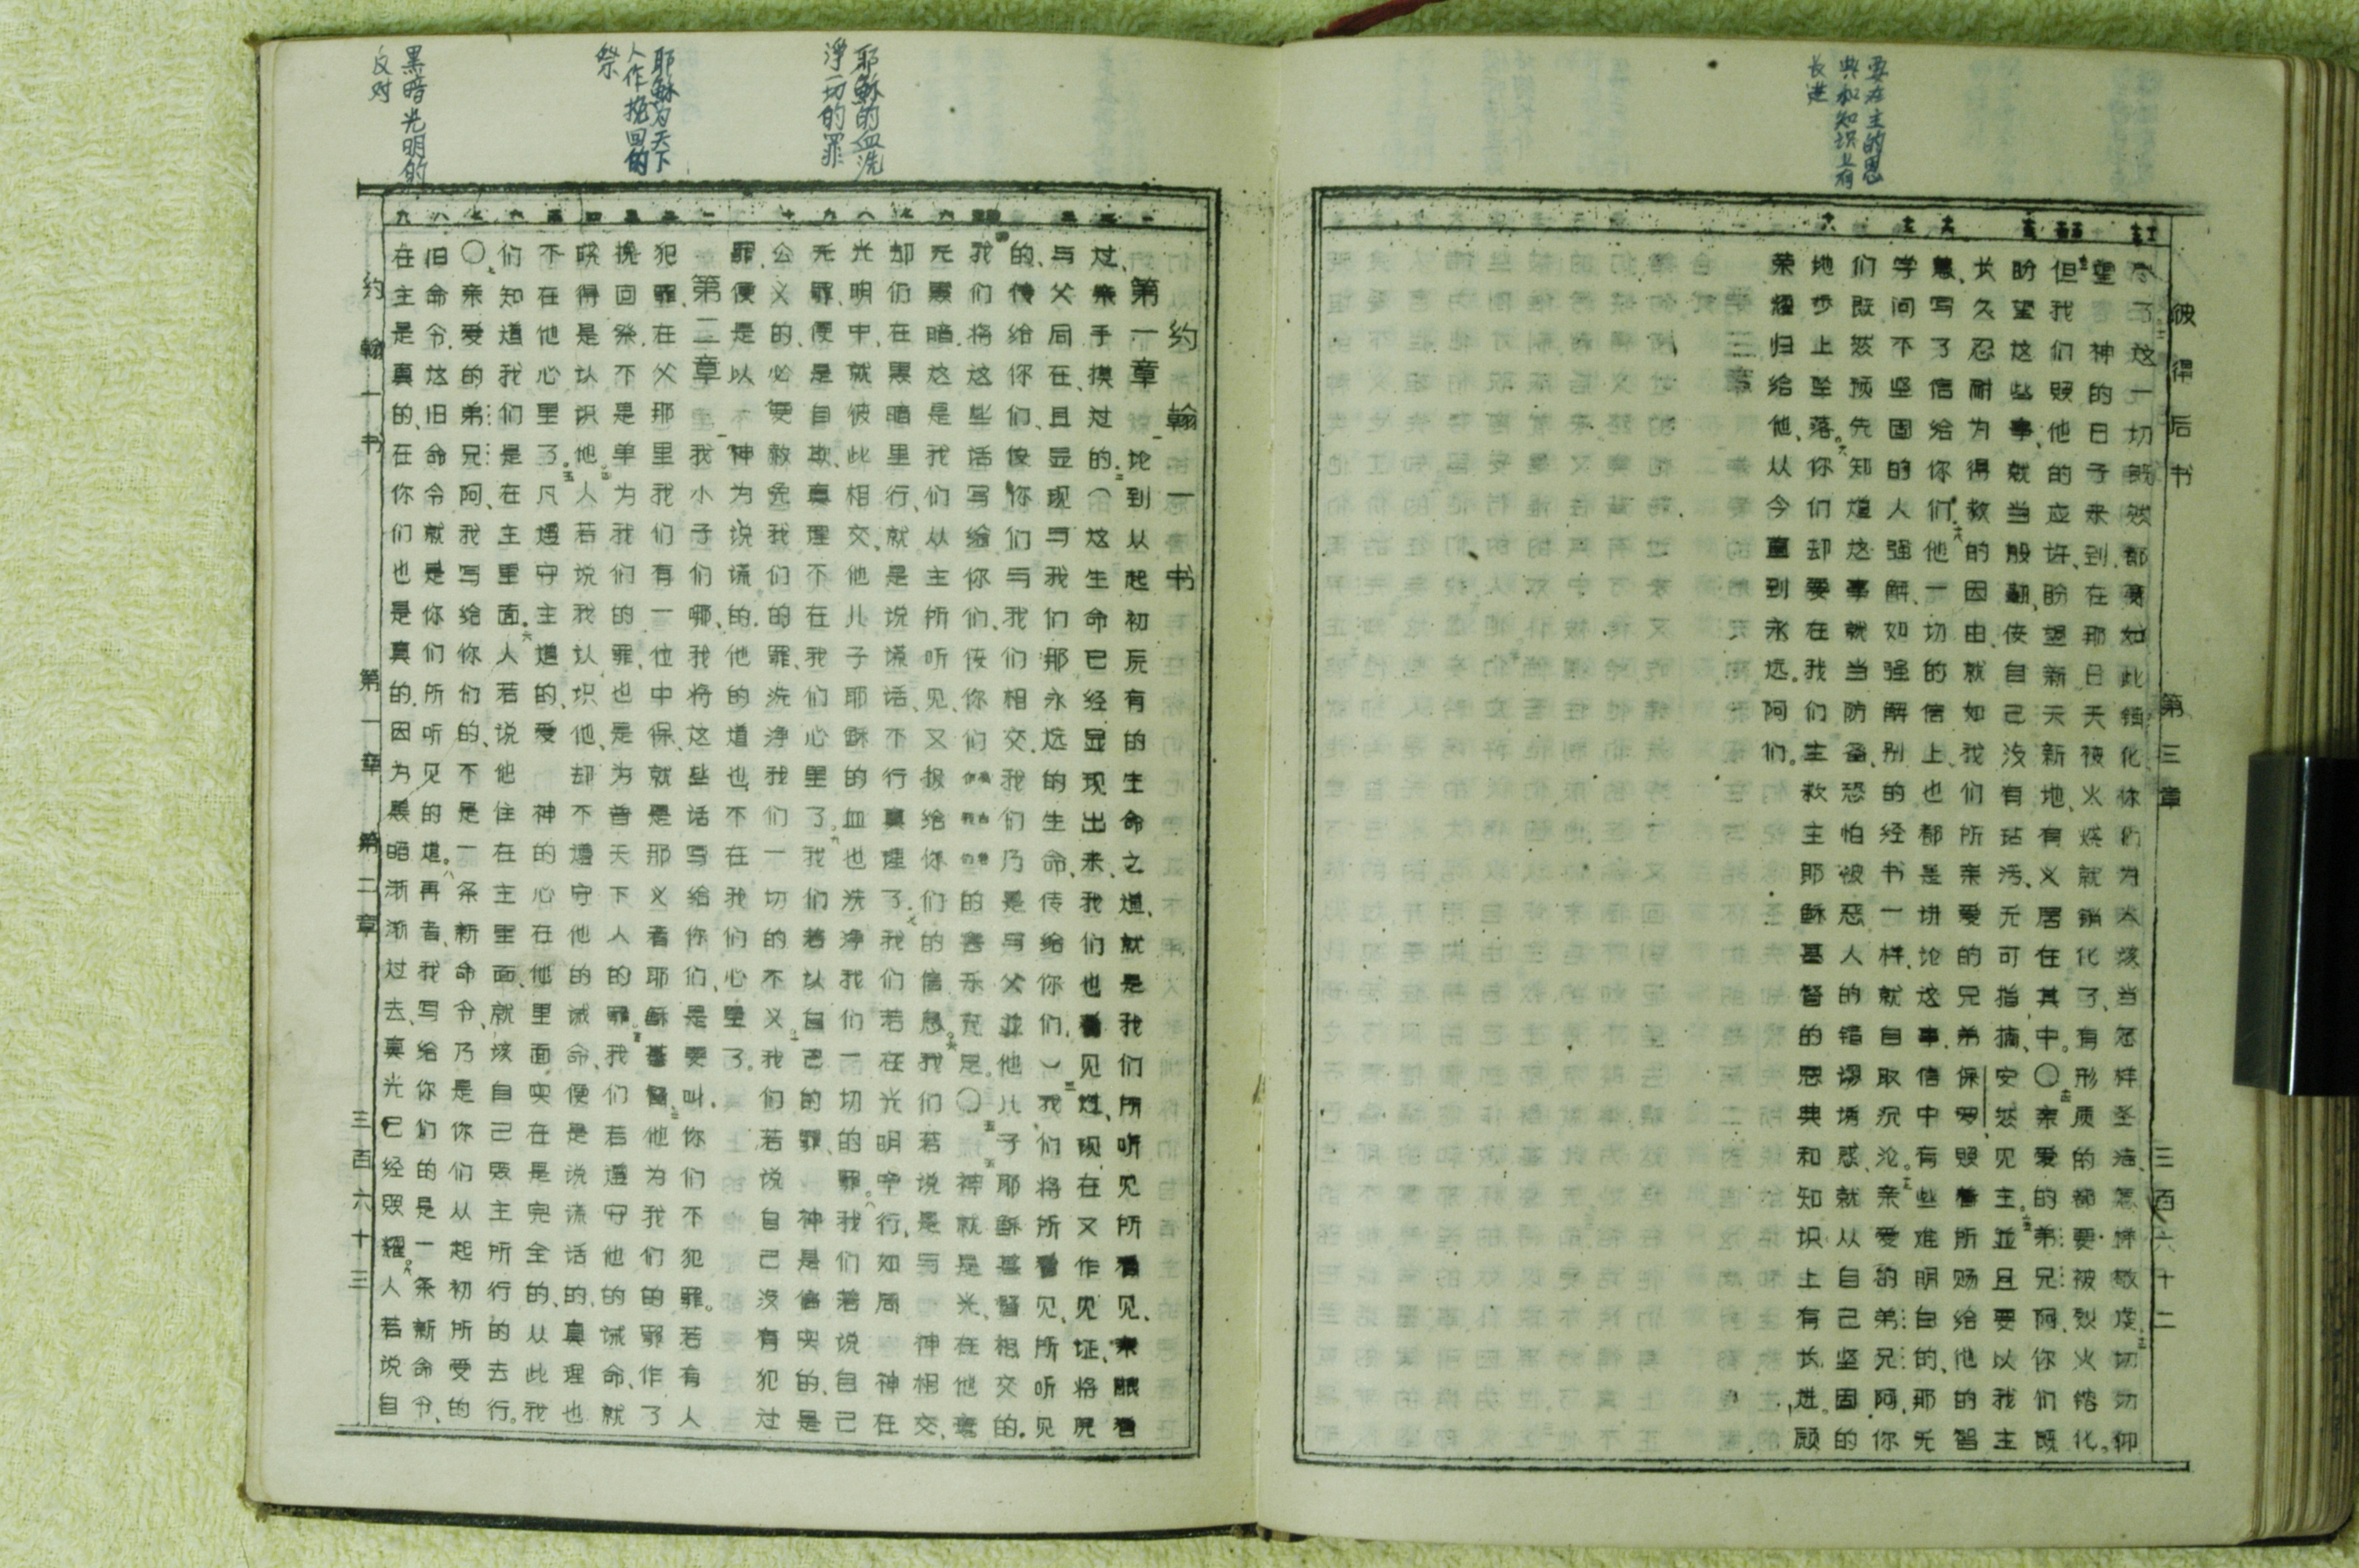 要在主的恩
典和知识上有
长进
彼得后书 第三章 三百六十二
尽了这一切既然都要如此销化你们为人该当怎样圣洁、怎样敬虔、切切仰
望 神的日子来到、在那日天被火烧就销化了、有形质的都要被烈火熔化。
但我们照他的应许、盼望新天新地、有义居在其中。○亲爱的弟兄阿、你们既
盼望这些事、就当殷勤、使自己没有玷污、无可指摘、安然见主。並且要以我主
长久忍耐为得救的因由、就如我们所亲爱的兄弟保罗、照着所赐给他的智
慧、写了信给你们、他一切的信上、也都是讲论这事、信中有些难明白的、那无
学问不坚固的人强解、如强解别的经书一样、就自取沉沦。亲爱的弟兄阿、你
们既然预先知道这事就当防备、恐怕被恶人的错谬诱惑、就从自己坚固的
地步上坠落。你们却要在我们主救主耶稣基督的恩典和知识上有长进。顾
荣耀归给他、从今直到永远。阿们。
耶稣的血洗
净一切的罪
耶稣为天下
人作挽回的
祭
黑暗光明的
反对
约翰一书
第一章 论到从起初原有的生命之道、就是我们所听见所看见、亲眼看
过、亲手摸过的。(这生命已经显现出来、我们也看见过、现在又作见证、将原
与父同在、且显现与我们那永远的生命、传给你们、)我们将所看见、所听见
的、传给你们、使你们与我们相交、我们乃是与父並他儿子耶稣基督相交的。
我们将这些话写给你们、使你们的喜乐充足。○神就是光、在他毫
无黑暗、这是我们从主所听见、又报给你们的信息。我们若说是与 神相交、
却仍在黑暗里行、就是说谎话、不行真理了、我们若在光明中行、如同 神在
光明中、就彼此相交、他儿子耶稣的血也洗净我们一切的罪。我们若说自己
无罪、便是自欺、真理不在我们心里了、我们若认自己的罪、神是信实的、是
公义的、必要赦免我们的罪、洗净我们一切的不义。我们若说自己没有犯过
罪、便是以 神为说谎的、他的道也不在我们心里了。
第二章 我小子们哪、我将这些话写给你们、是要叫你们不犯罪。若有人
犯罪、在父那里我们有一位中保、就是那义者耶稣基督、他为我们的罪作了
挽回祭、不是单为我们的罪、也是为普天下人的罪。我们若遵守他的诫命、就
晓得是认识他。人若说我认识他、却不遵守他的诫命、便是说谎话的、真理也
不在他心里了。凡遵守主道的、爱 神的心在他里面实在是完全的、从此我
们知道我们是在主里面。人若说他住在主里面、就该自己照主所行的去行。
○亲爱的弟兄阿、我写给你们的、不是一条新命令、乃是你们从起初所受的
旧命令、这旧命令就是你们所听见的道。再者、我写给你们的是一条新命令、
在主是真的、在你们也是真的、因为黑暗渐渐过去、真光已经照耀。人若说自
约翰一书 第一章 第二章 三百六十三